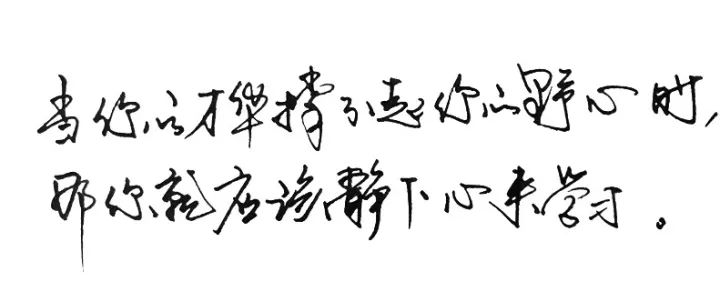 当你的才华撑不起你的野心时,
那你就应该静下心来学习。